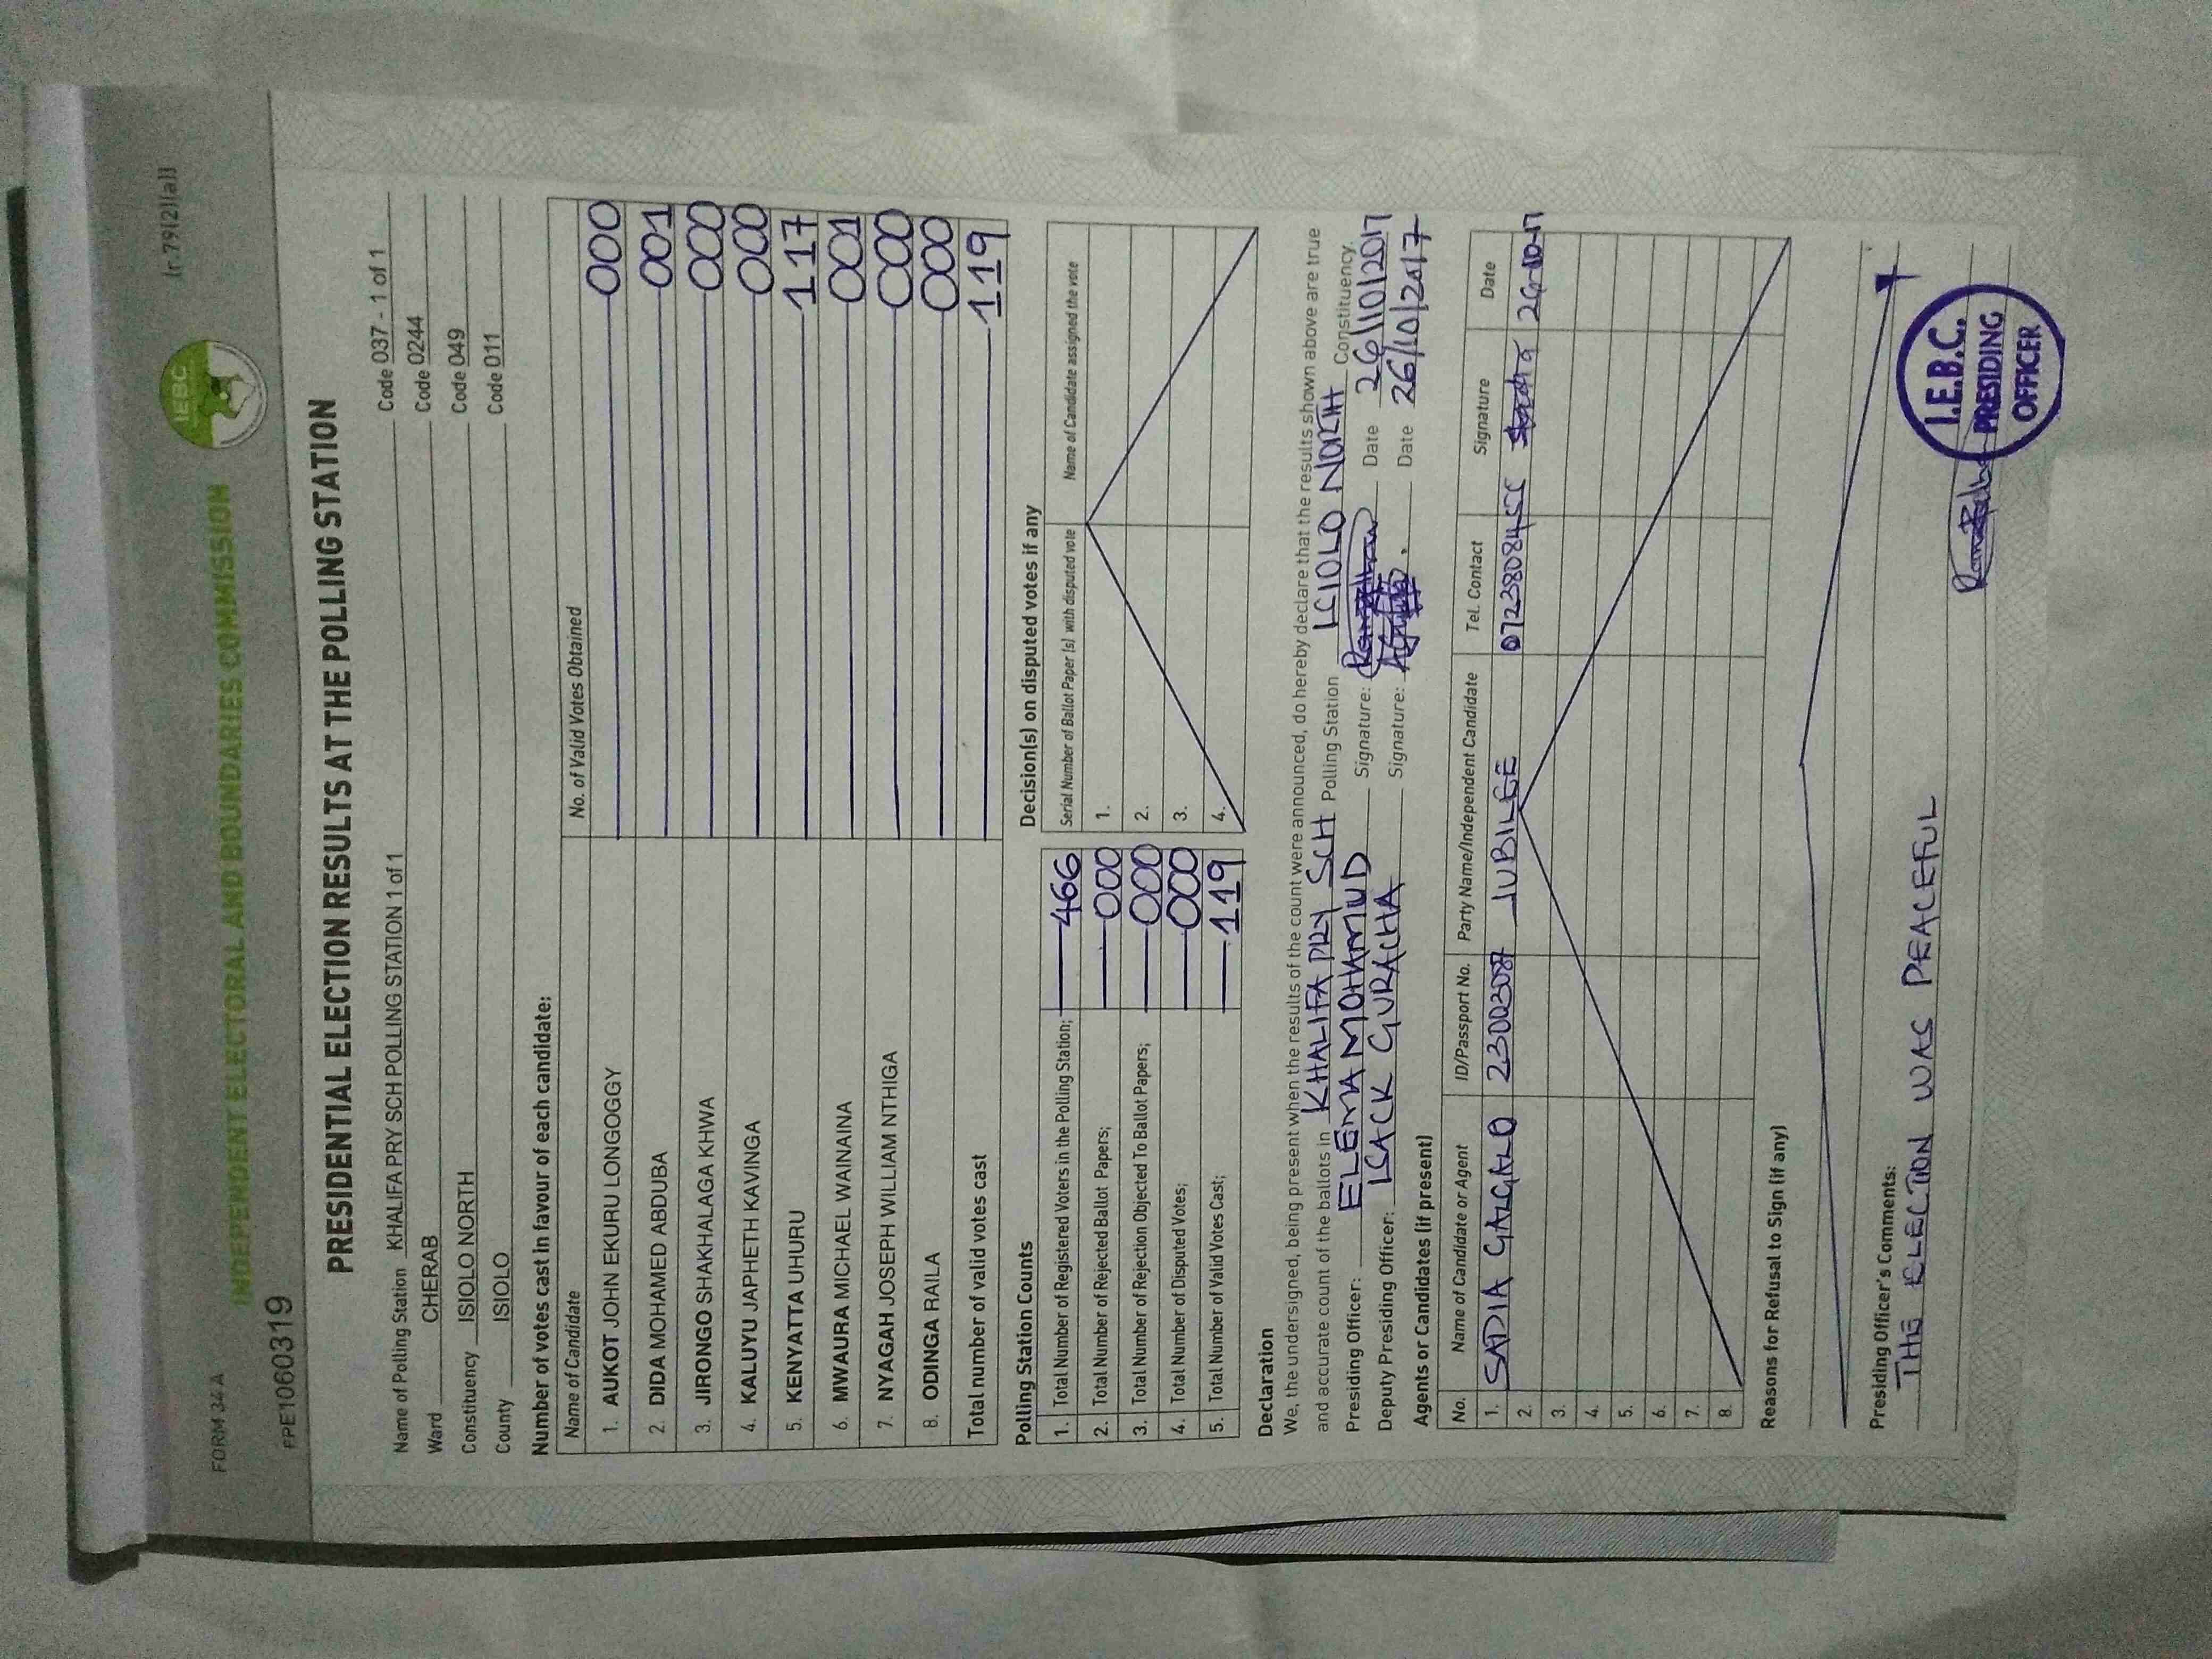 FORM 34 A
(r.79(2)(a))
IEBC
INDEPENDENT ELECTORAL AND BOUNDARIES COMMISSION
PPE1060319
PRESIDENTIAL ELECTION RESULTS AT THE POLLING STATION
Name of Polling Station KHALIFA PRY SCH POLLING STATION 1 of 1 Code 037 - 1 of 1
Ward CHERAB Code 0244
Constituency ISIOLO NORTH Code 049
County ISIOLO Code 011
Number of votes cast in favour of each candidate:
Name of Candidate No. of Valid Votes Obtained
1. AUKOT JOHN EKURU LONGOGGY 000
2. DIDA MOHAMED ABDUBA 001
3. JIRONGO SHAKHALAGA KHWA 000
4. KALUYU JAPHETH KAVINGA 000
5. KENYATTA UHURU 117
6. MWAURA MICHAEL WAINAINA 001
7. NYAGAH JOSEPH WILLIAM NTHIGA 000
8. ODINGA RAILA 000
Total number of valid votes cast 119
Polling Station Counts
1. Total Number of Registered Voters in the Polling Station; 466
2. Total Number of Rejected Ballot Papers; 000
3. Total Number of Rejection Objected To Ballot Papers; 000
4. Total Number of Disputed Votes; 000
5. Total Number of Valid Votes Cast; 119
Decision(s) on disputed votes if any
Serial Number of Ballot Paper (s) with disputed vote Name of Candidate assigned the vote
1.
2.
3.
4.
Declaration
We, the undersigned, being present when the results of the count were announced, do hereby declare that the results shown above are true
and accurate count of the ballots in KHALIFA PRY SCH Polling Station ISIOLO NORTH Constituency.
Presiding Officer: ELEMA MOHAMUD Signature: Date 26/10/2017
Deputy Presiding Officer: ISACK GURACHA Signature: Date 26/10/2017
Agents or Candidates (if present)
No. Name of Candidate or Agent ID/Passport No. Party Name/Independent Candidate Tel. Contact Signature Date
1. SADIA GALGALO JUBILEE 26-10-17
2.
3.
4.
5.
6.
7.
8.
Reasons for Refusal to Sign (if any)
Presiding Officer's Comments:
THE ELECTION WAS PEACEFUL
I.E.B.C.
PRESIDING
OFFICER